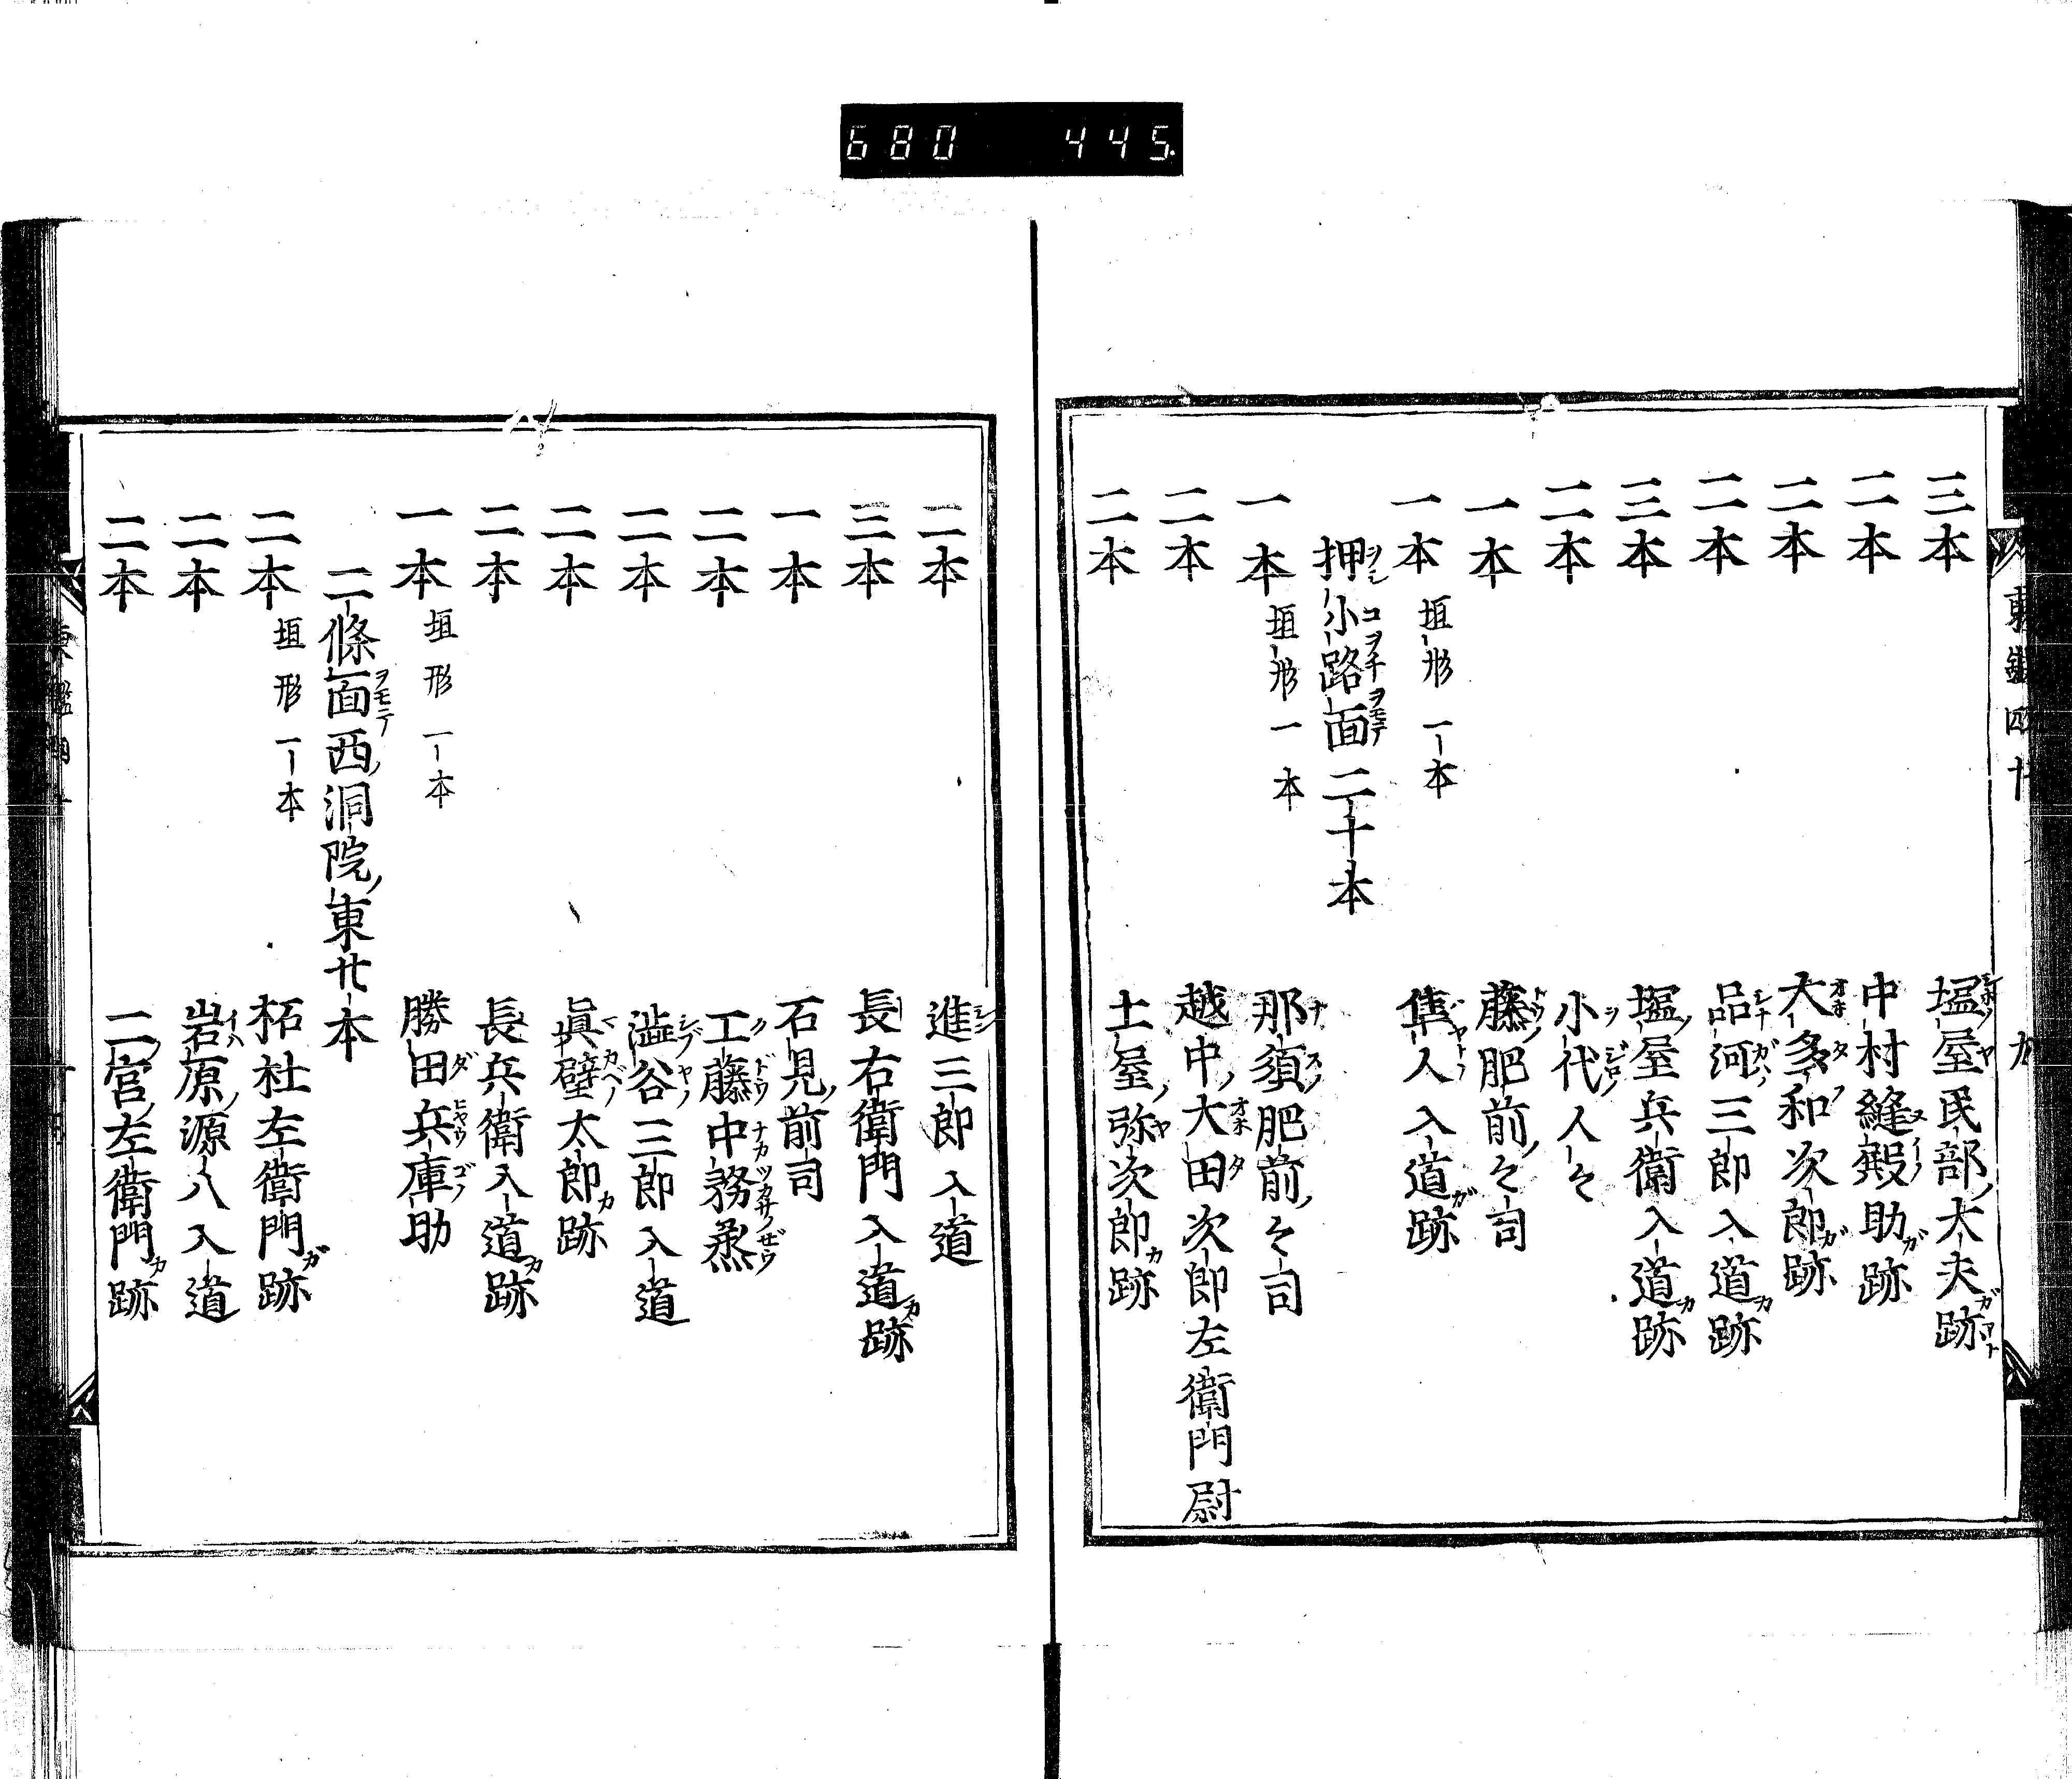 680 445
三本 塩屋民部大夫跡
二本 中村縫殿助跡
二本 大多和次郎跡
二本 品河三郎入道跡
三本 塩屋兵衛入道跡
二本 小代人々
一本 藤肥前々司
一本 垣形一本 隼人入道跡
押小路面二十本
一本 垣形一本 那須肥前々司
二本 越中大田次郎左衛門尉
二本 土屋弥次郎跡
二本 進三郎入道
三本 長右衛門入道跡
一本 石見前司
二本 工藤中務烝
二本 澁谷三郎入道
二本 眞壁太郎跡
二本 長兵衛入道跡
一本 垣形一本 勝田兵庫助
二條面西洞院東廿本
二本 垣形一本 柘杜左衛門跡
二本 岩原源八入道
二本 二宮左衛門跡